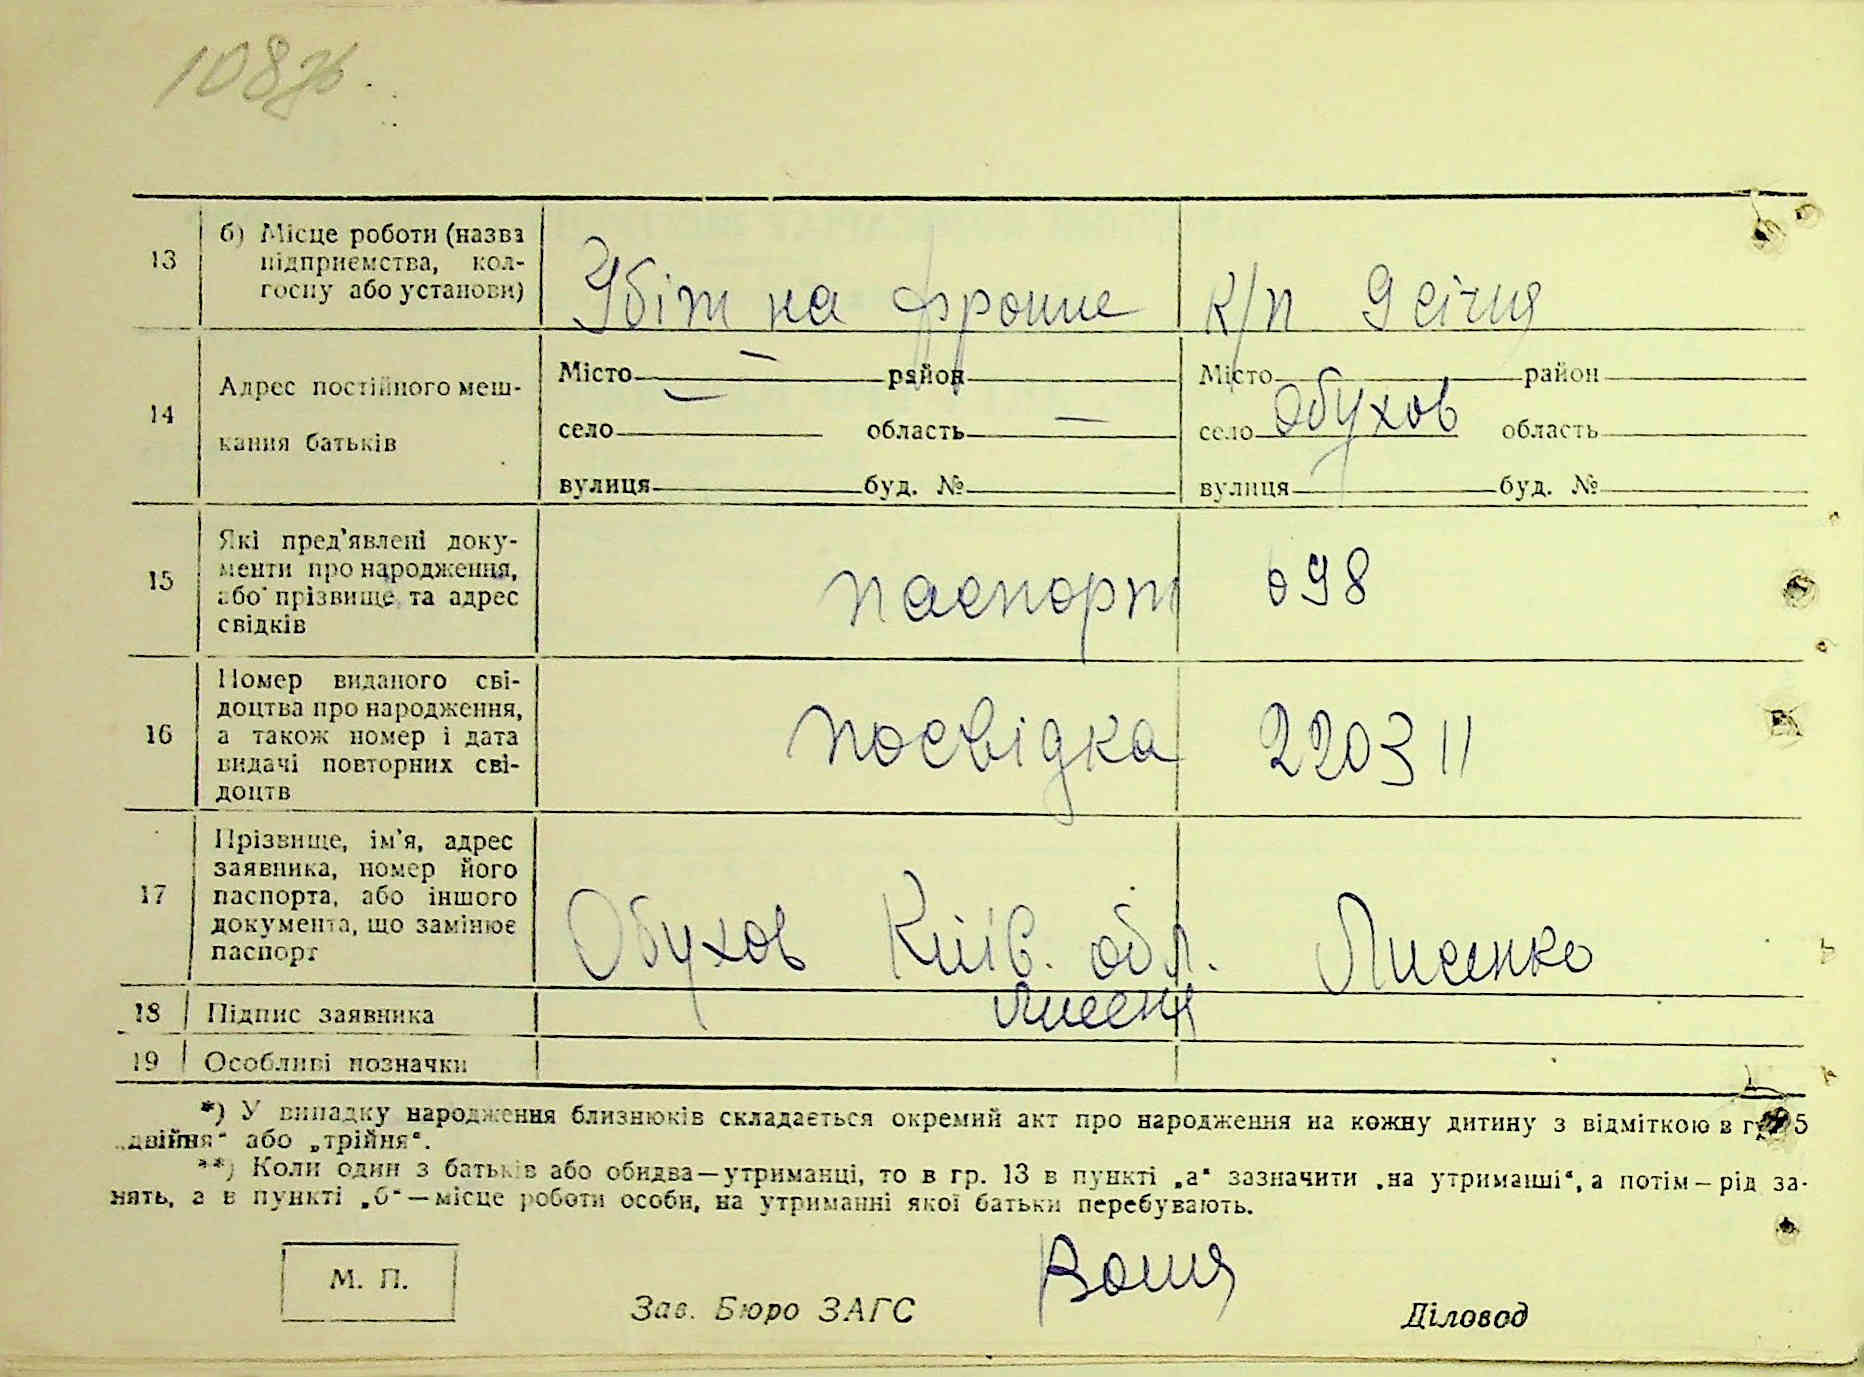 108
13 б) Місце роботи (назва
підприємства, кол-
госпу або установи)
Убіт на фронте
к/п 9 січня
14 Адрес постійного меш-
кання батьків
Місто — район
село — область —
вулиця буд. №
Місто район
село Обухов область
вулиця буд. №
15 Які пред'явлені доку-
менти про народження,
або прізвище та адрес
свідків
паспорт 698
16 Номер виданого сві-
доцтва про народження,
а також номер і дата
видачі повторних сві-
доцтв
посвідка 220311
17 Прізвище, ім'я, адрес
заявника, номер його
паспорта, або іншого
документа, що замінює
паспорт
Обухов Київ. обл. Лисенко
18 Підпис заявника
19 Особливі позначки
*) У випадку народження близнюків складається окремий акт про народження на кожну дитину з відміткою в гр. 5
„двійня“ або „трійня“.
**) Коли один з батьків або обидва—утриманці, то в гр. 13 в пункті „а“ зазначити „на утриманні“, а потім—рід за-
нять, а в пункті „б“—місце роботи особи, на утриманні якої батьки перебувають.
М. П.
Зав. Бюро ЗАГС
Діловод